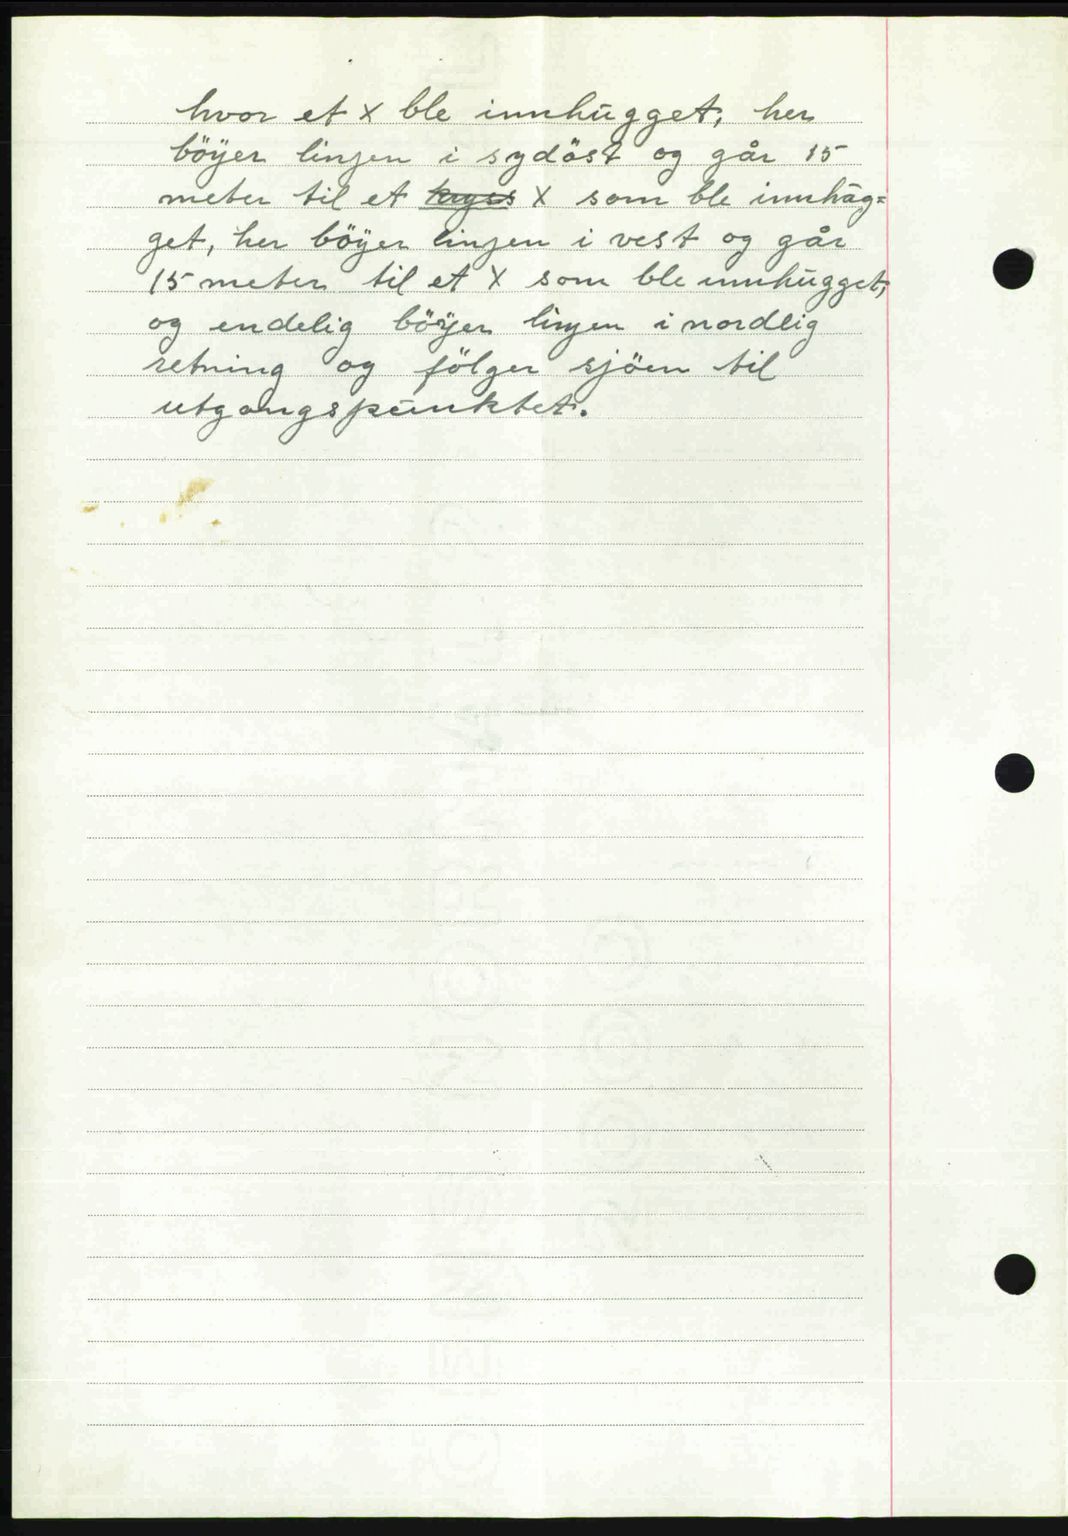 hvor et x ble innhugget, her
böyer linjen i sydöst og går 15
meter til et kryss X som ble innhug=
get, her böyer linjen i vest og går
15 meter til et X som ble innhugget,
og endelig böyer linjen i nordlig
retning og fölger sjöen til
utgangspunktet.